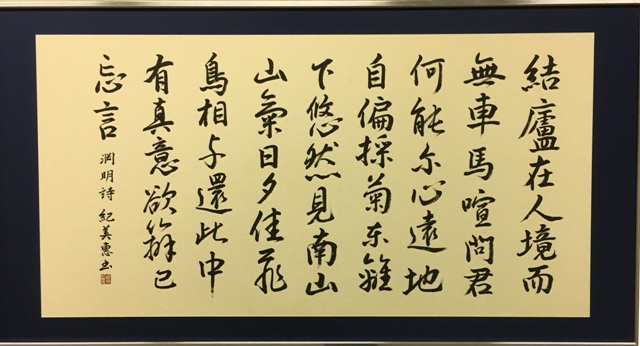 結廬在人境而
無車馬喧問君
何能尓心遠地
自偏採菊东籬
下悠然見南山
山氣日夕佳飛
鳥相与還此中
有真意欲辨已
忘言
淵明詩 紀美惠书